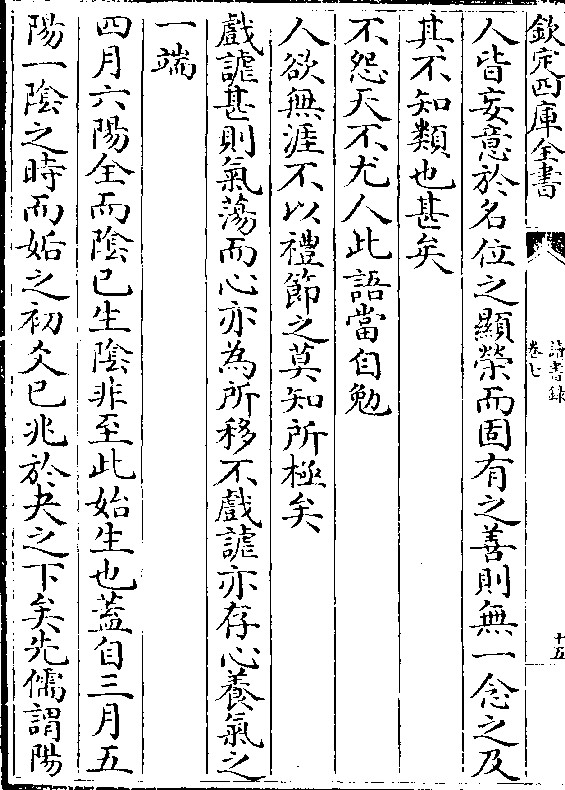 欽定四庫全書
讀書録
卷七
十五
人皆妄意於名位之顯榮而固有之善則無一念之及
其不知類也甚矣
不怨天不尤人此語當自勉
人欲無涯不以禮節之莫知所極矣
戲謔甚則氣蕩而心亦為所移不戲謔亦存心養氣之
一端
四月六陽全而陰已生陰非至此始生也蓋自三月五
陽一陰之時而姤之初爻已兆於夬之下矣先儒謂陽